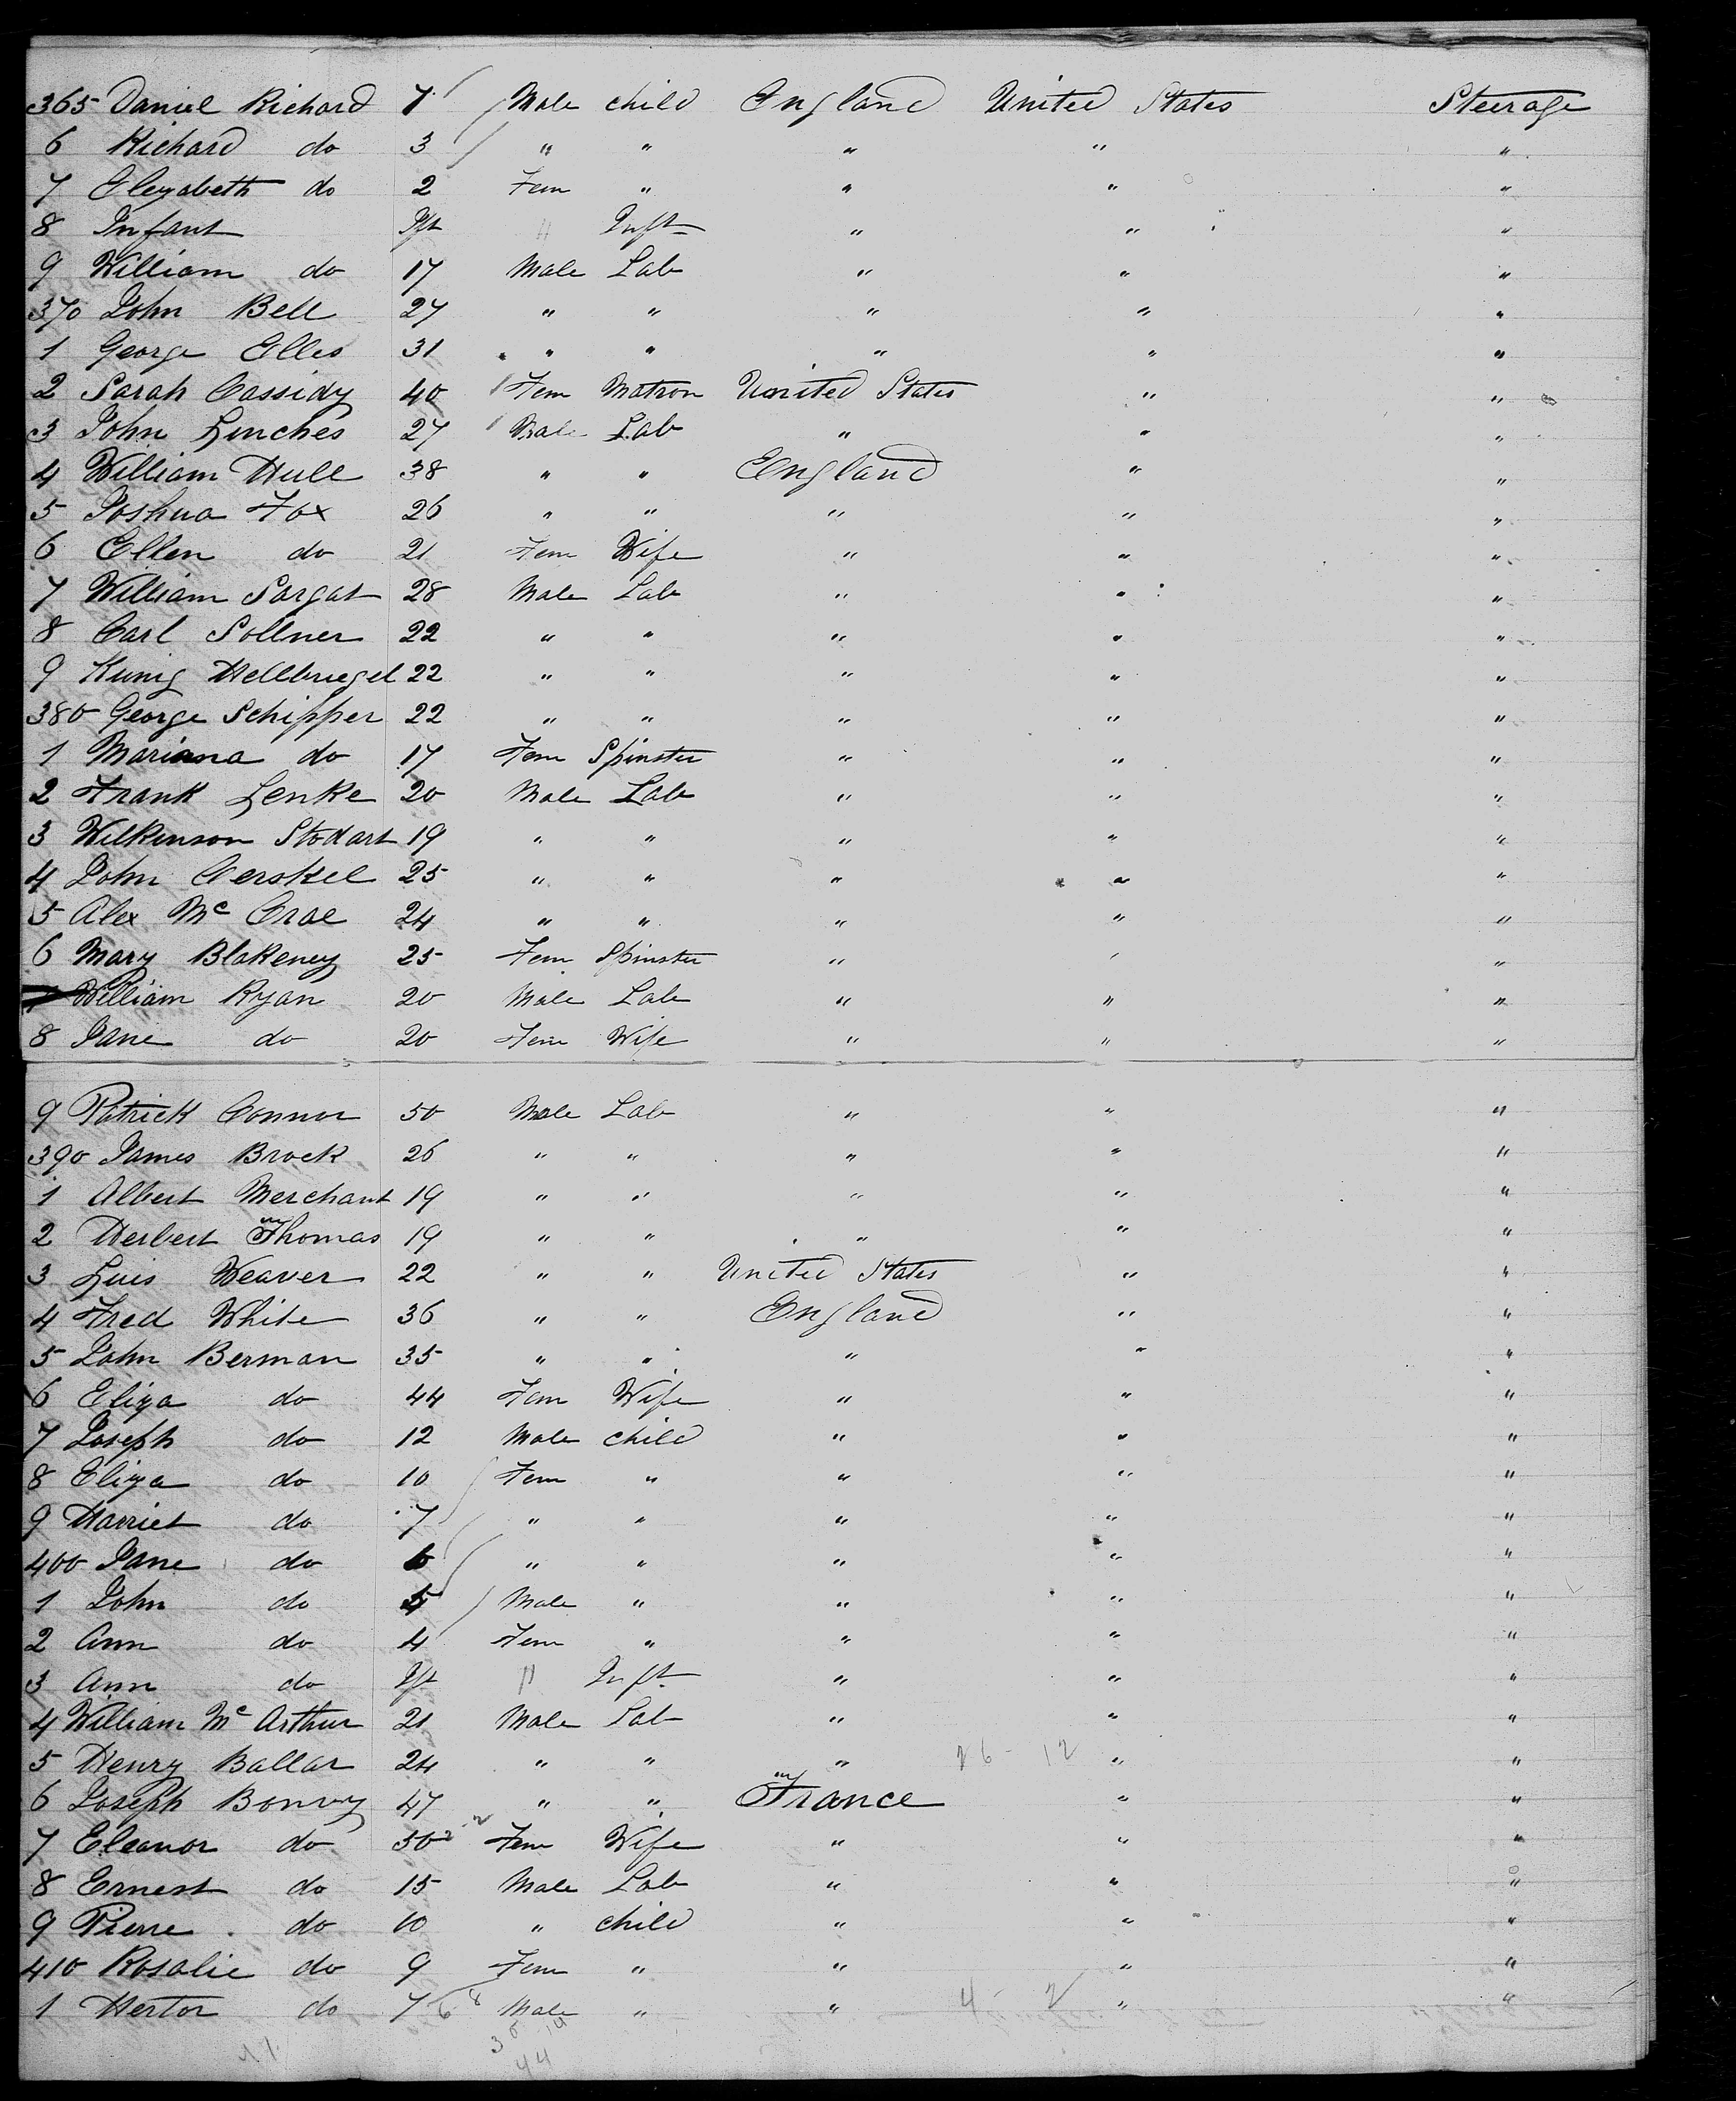 365 Daniel Richard 7 Male child England United States Steerage
6 Richard do 3 " " " " "
7 Elizabeth do 2 Fem " " " "
8 Infant Ift " Inft " " "
9 William do 17 Male Lab " " "
370 John Bell 27 " " " " "
1 George Elles 31 " " " " "
2 Sarah Cassidy 40 Fem Matron United States " "
3 John Linches 27 Male Lab " " "
4 William Hull 38 " " England " "
5 Joshua Fox 26 " " " " "
6 Ellen do 21 Fem Wife " " "
7 William Sargat 28 Male Lab " " "
8 Carl Sollner 22 " " " " "
9 Kunig Hellbruegel 22 " " " " "
380 George Schipper 22 " " " " "
1 Mariana do 17 Fem Spinster " " "
2 Frank Lenke 20 Male Lab " " "
3 Wilkinson Stodart 19 " " " " "
4 John 25 " " " " "
5 Alex Mc Crae 24 " " " " "
6 Mary Blakeney 25 Fem Spinster " " "
7 William Ryan 20 Male Lab " " "
8 Jane do 20 Fem Wife " " "
9 Patrick Connor 50 Male Lab " " "
390 James Brock 26 " " " " "
1 Albert Merchant 19 " " " " "
2 Herbert Thomas 19 " " " " "
3 Luis Weaver 22 " " United States " "
4 Fred White 36 " " England " "
5 John Berman 35 " " " " "
6 Eliza do 44 Fem Wife " " "
7 Joseph do 12 Male child " " "
8 Eliza do 10 Fem " " " "
9 Harriet do 7 " " " " "
400 Jane do 6 " " " " "
1 John do Male " " " "
2 Ann do 4 Fem " " " "
3 Ann do Ift " Inft " " "
4 William Mc Arthur 21 Male Lab " " "
5 Henry Ballar 24 " " " 26 - 12 " "
6 Joseph Bonvy 47 " " France " "
7 Eleanor do 50 Fem Wife " " "
8 Ernest do 15 Male Lab " " "
9 Pierre do 10 " child " " "
410 Rosalie do 9 Fem " " " "
1 Hertor do 7 Male " " 4 - 2 " "
44